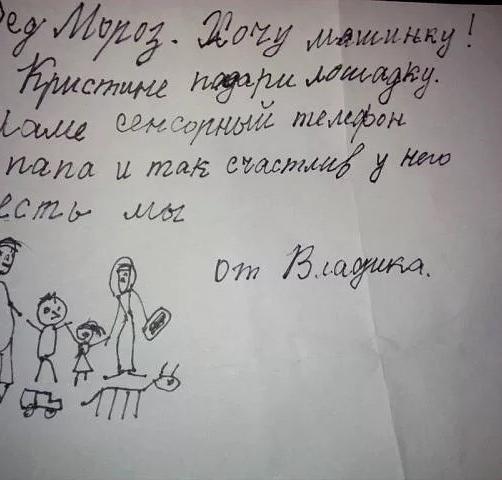 Дед Мороз. Хочу машинку!
Кристине подари лошадку.
Маме сенсорный телефон
папа и так счастлив у него
есть мы
от Владика.